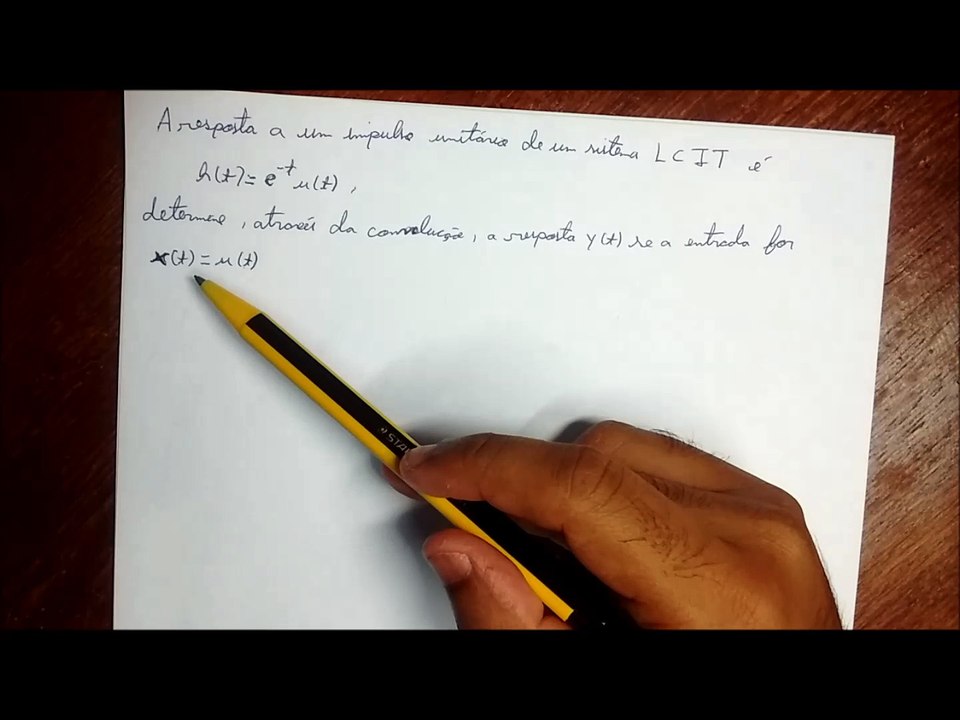 A resposta a um impulso unitário de um sistema LCIT é
h(t)= e^-t u(t),
determine, através da convolução, a resposta y(t) se a entrada for
x(t) = u(t)
STAE